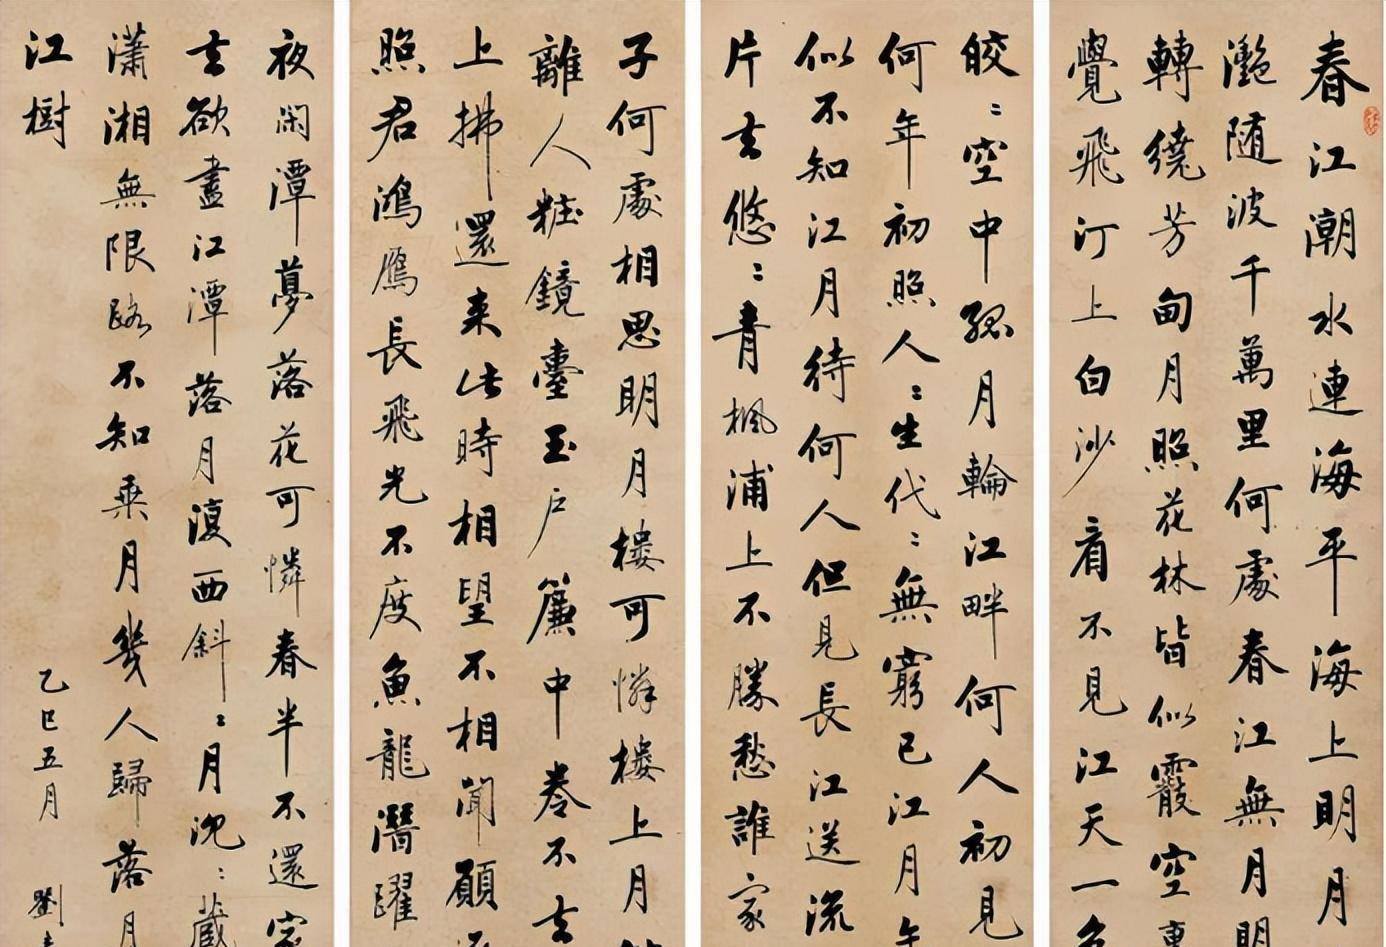 春江潮水連海平海上明月
灧随波千萬里何處春江無月明
轉繞芳甸月照花林皆似霰空
覺飛汀上白沙看不見江天一色
皎〻空中孤月輪江畔何人初見
何年初照人〻生代〻無窮已江月年
似不知江月待何人但見長江送流
片去悠〻青楓浦上不勝愁誰家
子何處相思明月樓可憐樓上月
離人粧鏡臺玉户簾中卷不去
上拂還来此時相望不相聞願
照君鴻鴈長飛光不度魚龍潛躍
夜閑潭夢落花可憐春半不還家
去欲盡江潭落月復西斜〻月沉〻藏
瀟湘無限路不知乘月幾人歸落月
江樹
乙巳五月 劉